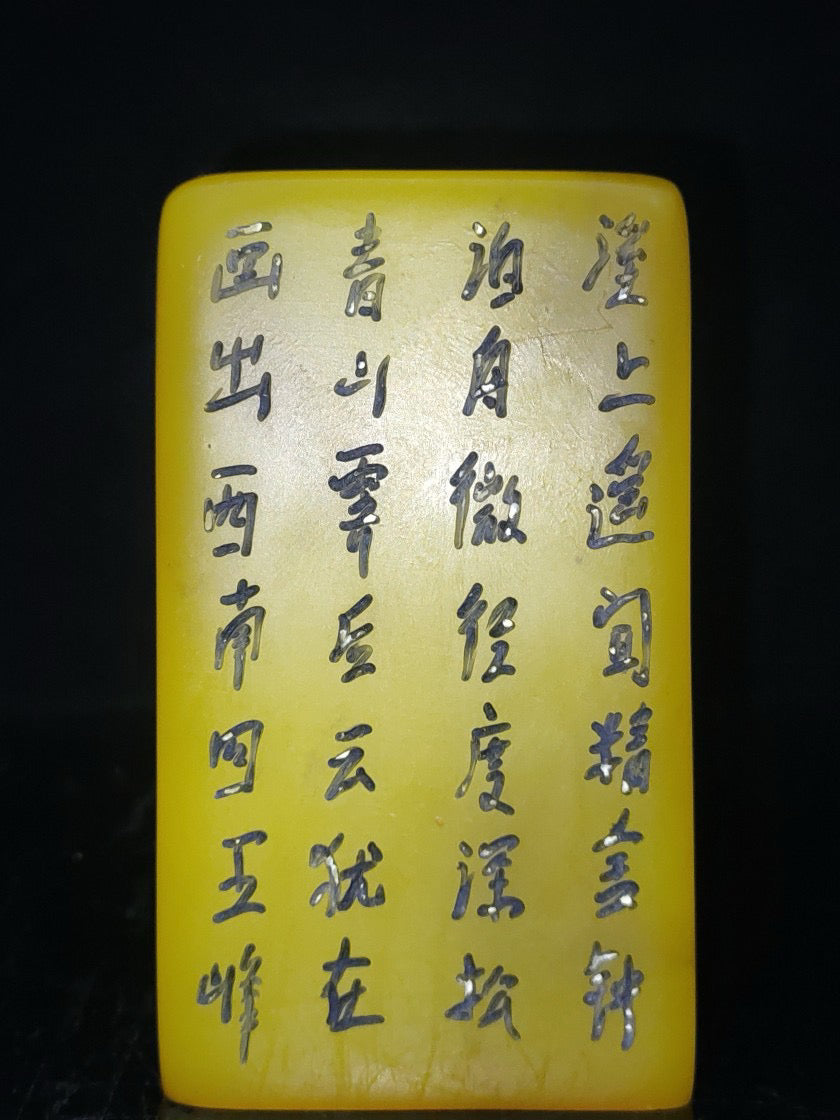 溪上遥闻精舍钟
泊舟微径度深松
青山霁后云犹在
画出西南四五峰